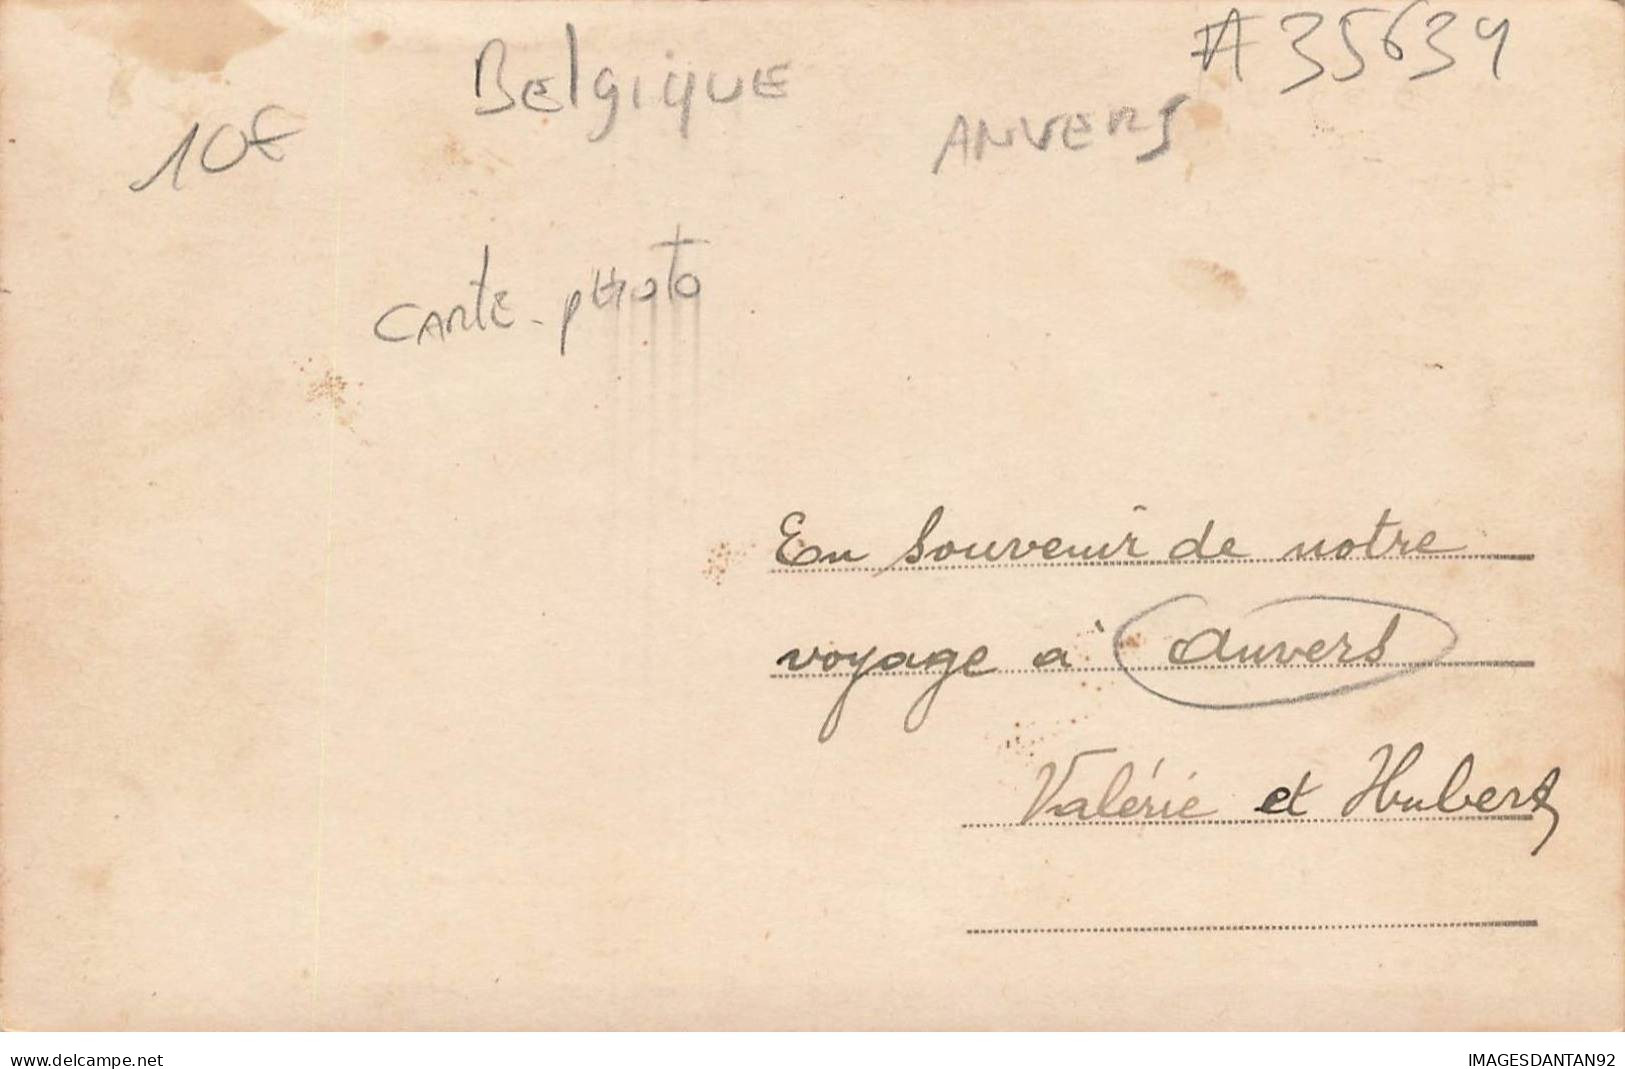 #35639
Belgique
10€
ANVERS
CARTE-PHOTO
En souvenir de notre
voyage à Anvers
Valérie et Hubert
www.delcampe.net
IMAGESDANTAN92